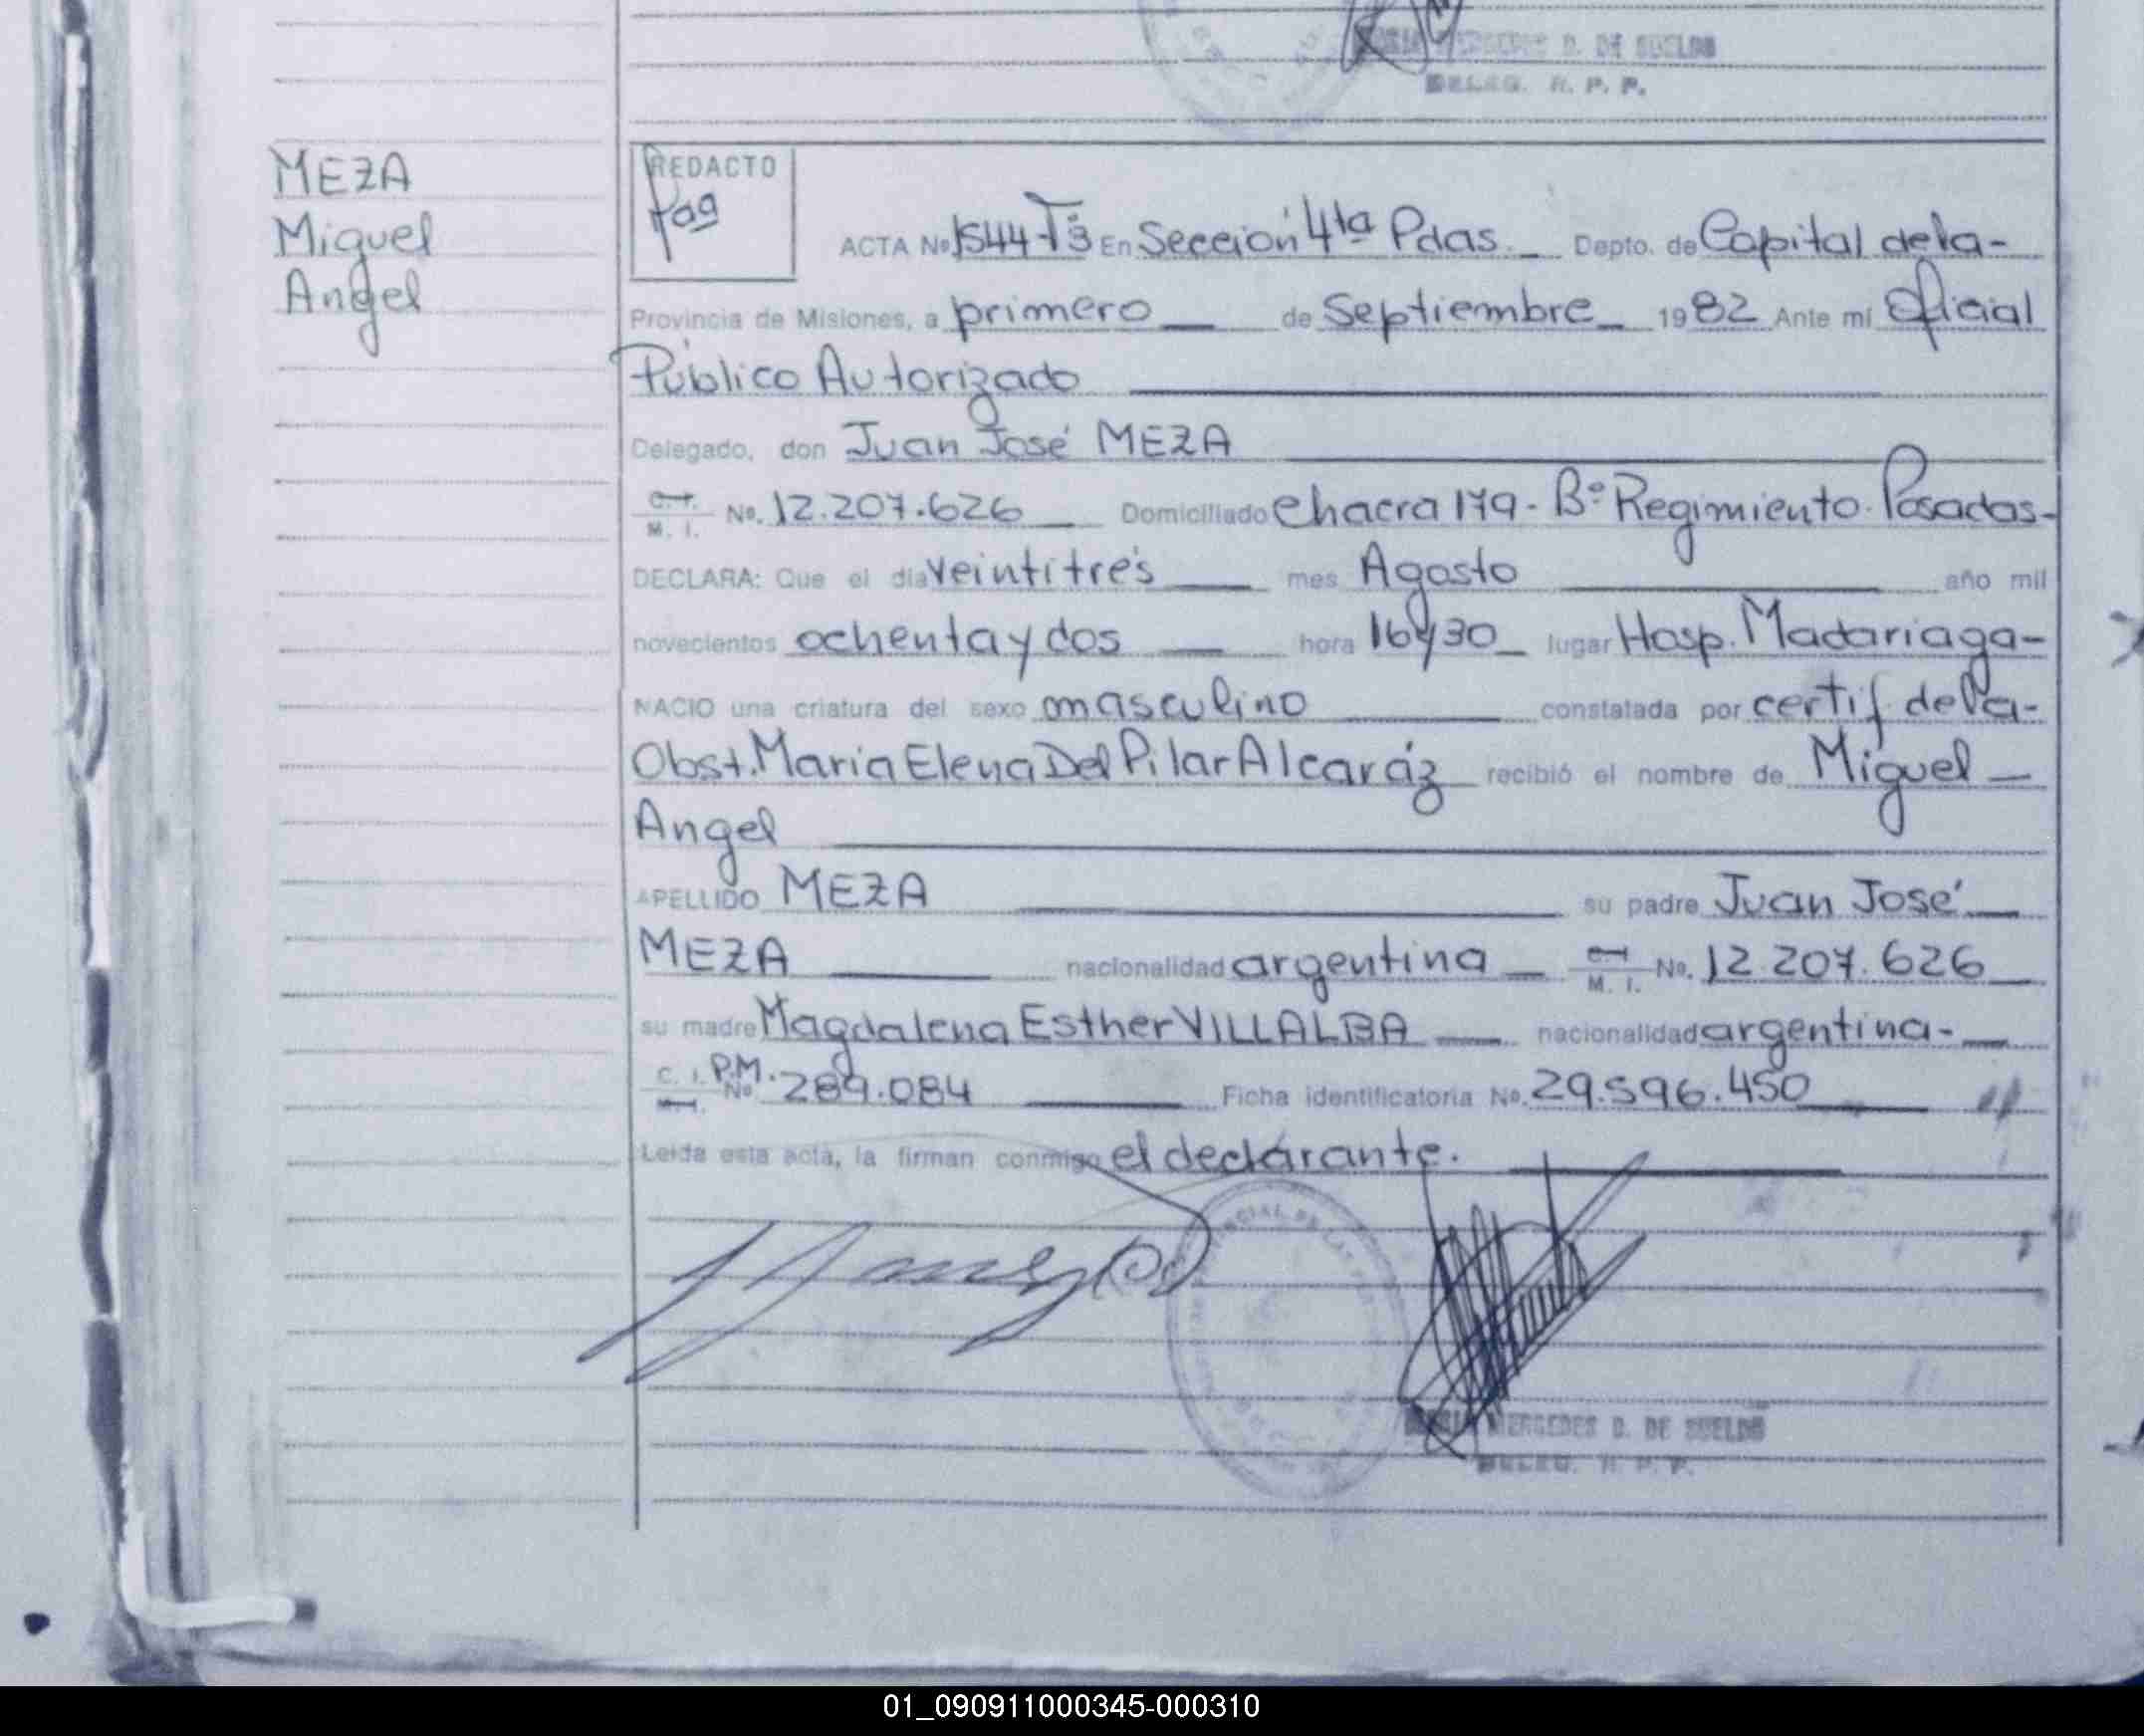 MERCEDES D. DE SUELDO
DELEG. R. P. P.
MEZA
Miguel
Angel
REDACTO
ACTA Nº 1544-Tº3 En Sección 4ta Pdas. Depto. de Capital de la-
Provincia de Misiones, a primero de Septiembre 1982 Ante mí Oficial
Público Autorizado
Delegado, don Juan José MEZA
C.I. M. I. Nº. 12.207.626 Domiciliado Chacra 179- Bº Regimiento. Posadas-
DECLARA: Que el día veintitrés mes Agosto año mil
novecientos ochenta y dos hora 16y30 lugar Hosp. Madariaga-
NACIO una criatura del sexo masculino constatada por certif de la-
Obst. Maria Elena Del Pilar Alcaráz recibió el nombre de Miguel
Angel
APELLIDO MEZA su padre Juan José
MEZA nacionalidad argentina C.I. M. I. Nº. 12.207.626
su madre Magdalena Esther VILLALBA nacionalidad argentina-
C. I. M.I. P.M. Nº. 289.084 Ficha identificatoria Nº. 29.596.450
Leída esta acta, la firman conmigo el declarante.
MERCEDES D. DE SUELDO
DELEG. R. P. P.
01_090911000345-000310